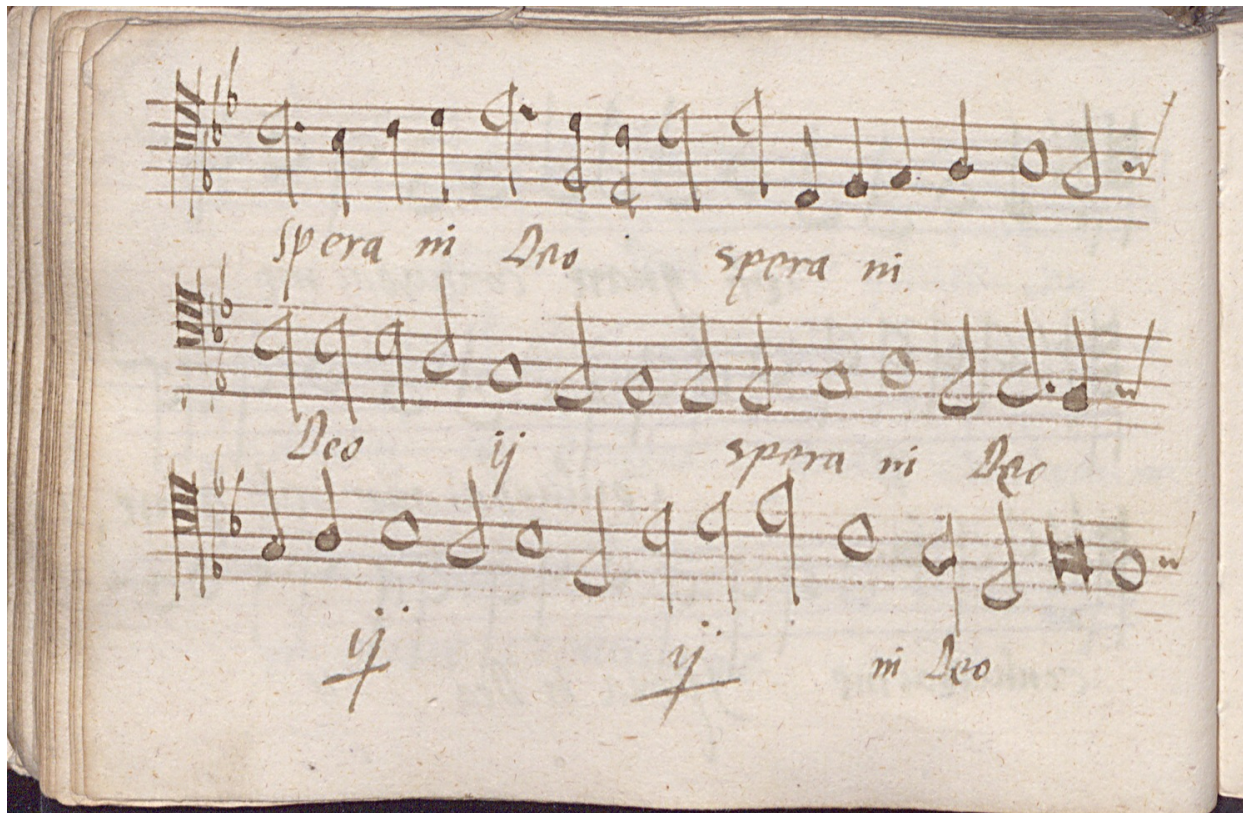 spera in Deo spera in
Deo ij spera in Deo
ij ij in Deo